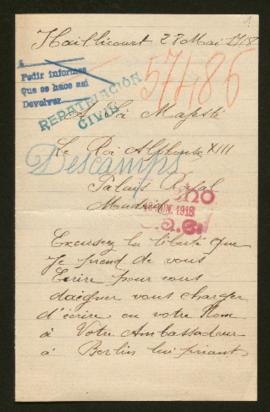 Haillicourt 27 Mai 1918
57486
Pedir informes
Que se hace así
Devolver
REPATRIACIÓN
CIVIL
à Sa Majesté
Le Roi Alphonse XIII
Descamps
Palais Royal
Madrid
1918
Excusez la liberté que
Je prend de vous
Ecrire pour vous
daigner vous charger
d'écrire en votre Nom
à Votre Ambassadeur
à Berlin lui priant